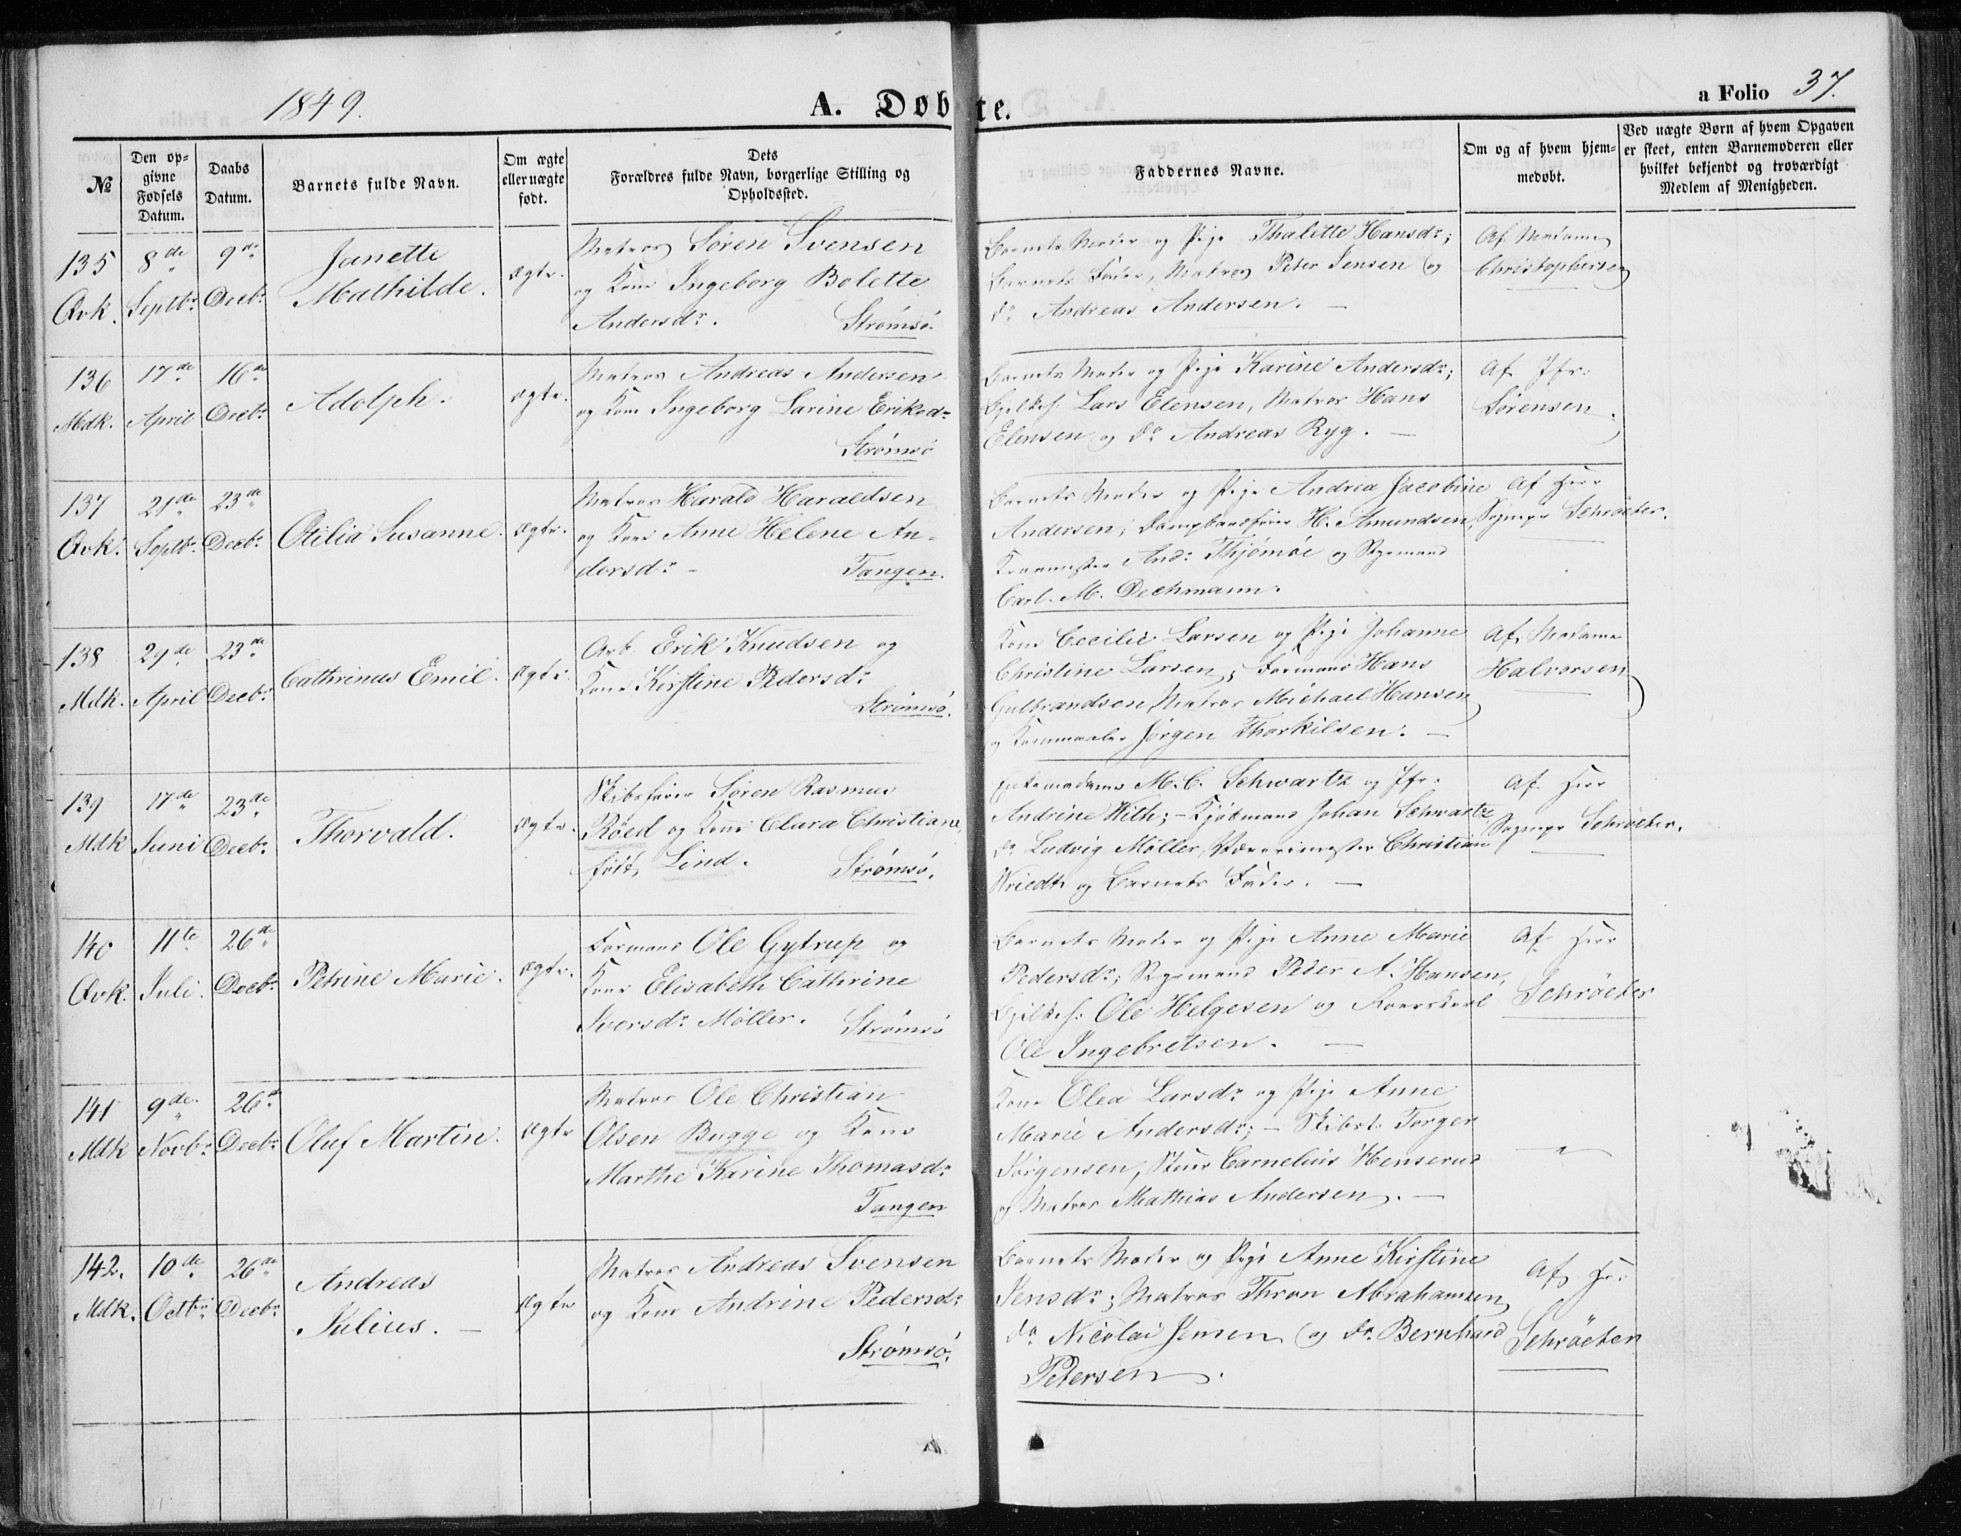 1849.
A. Døbte.
a Folio 37.
№
Den opgivne Fødsels Datum.
Daabs Datum.
Barnets fulde Navn.
Om ægte eller uægte født.
Dets Forældres fulde Navn, borgerlige Stilling og Opholdssted.
Faddernes Navne.
Om og af hvem hjemmedøbt.
Ved uægte Børn af hvem Opgaven er skeet, enten Barnemoderen eller hvilket bekjendt og troværdigt Medlem af Menigheden.
135
Qvk.
8de
Septbr.
9de
Decbr.
Janette
Mathilde.
Ægte.
Matros Søren Svensen
og Kone Ingeborg Bolette
Andersdr.
Strømsø.
Barnets Moder og Pige Thalette Hansdr;
Barnets Fader, Matros Peter Jensen og
do Andreas Andersen. —
Af Madame
Christophersen
136
Mdk.
17de
April
16de
Decbr.
Adolph.
Ægte.
Matros Andreas Andersen
og Kone Ingeborg Larine Eriksdr
Strømsø
Barnets Moder og Pige Karine Andersdr;
Lars Elensen, Matros Hans
Elensen og do Andreas Ryg. —
Af Jfr.
Sørensen.
137
Qvk.
21de
Septbr.
23de
Decbr.
Otilia Susanne.
Ægte.
Matros Harald Haraldsen
og Kone Anne Helene An-
dersdr —
Tangen.
Barnets Moder og Pige Andrea Jacobine
Andersen; H. Amundsen,
Andr. Thjømøe og Styrmand
Carl. M. Dechmann.
Af Herr
Sognepr Schrøeter.
138
Mdk.
29de
April
23de
Decbr.
Cathrinus Emil.
Ægte.
Arb. Erik Knudsen og
Kone Kirstine Pedersdr
Strømsø.
Kone Cecilie Larsen og Pige Johanne
Christine Larsen; Formand Hans
Gulbrandsen, Matros Michael Hansen
og Jørgen Thorkilsen. —
Af Madame
Halvorsen
139
Mdk
17de
Juni
23de
Decbr.
Thorvald.
Ægte.
Skibsfører Søren Rasmus
Røed og Kone Clara Christiane,
født Lind.
Strømsø.
M. C. Schwartz og Jfr.
Andrine With; — Kjøbmand Johan Schwartz,
do Ludvig Møller, Christian
Wriedt og Barnets Fader. —
Af Herr
Sognepr Schrøeter.
140
Qvk.
11te
Juli.
26de
Decbr.
Petrine Marie.
Ægte.
Formand Ole Gytrup og
Kone Elisabeth Cathrine
Iversdr Møller.
Strømsø
Barnets Moder og Pige Anne Marie
Pedersdr; Styrmand Peder A. Hansen,
Ole Helgesen og
Ole Ingebretsen. —
Af Herr
Schrøeter
141
Mdk
9de
Novbr.
26de
Decbr.
Oluf Martin.
Ægte
Matros Ole Christian
Olsen Bugge og Kone
Marthe Karine Thomasdr
Tangen
Kone Olea Larsdr og Pige Anne
Marie Andersdr; — Skibst. Torger
Jørgensen, Carnelius Henserud
og Matros Mathias Andersen. —
142.
Mdk.
10de
Octbr.
26de
Decbr.
Andreas
Julius. —
Ægte
Matros Andreas Svensen
og Kone Andrine Pedersdr
Strømsø.
Barnets Moder og Pige Anne Kirstine
Jensdr; Matros Thron Abrahamsen,
do Nicolai Jensen og do Bernhard
Petersen.
Af Hr.
Schrøeter